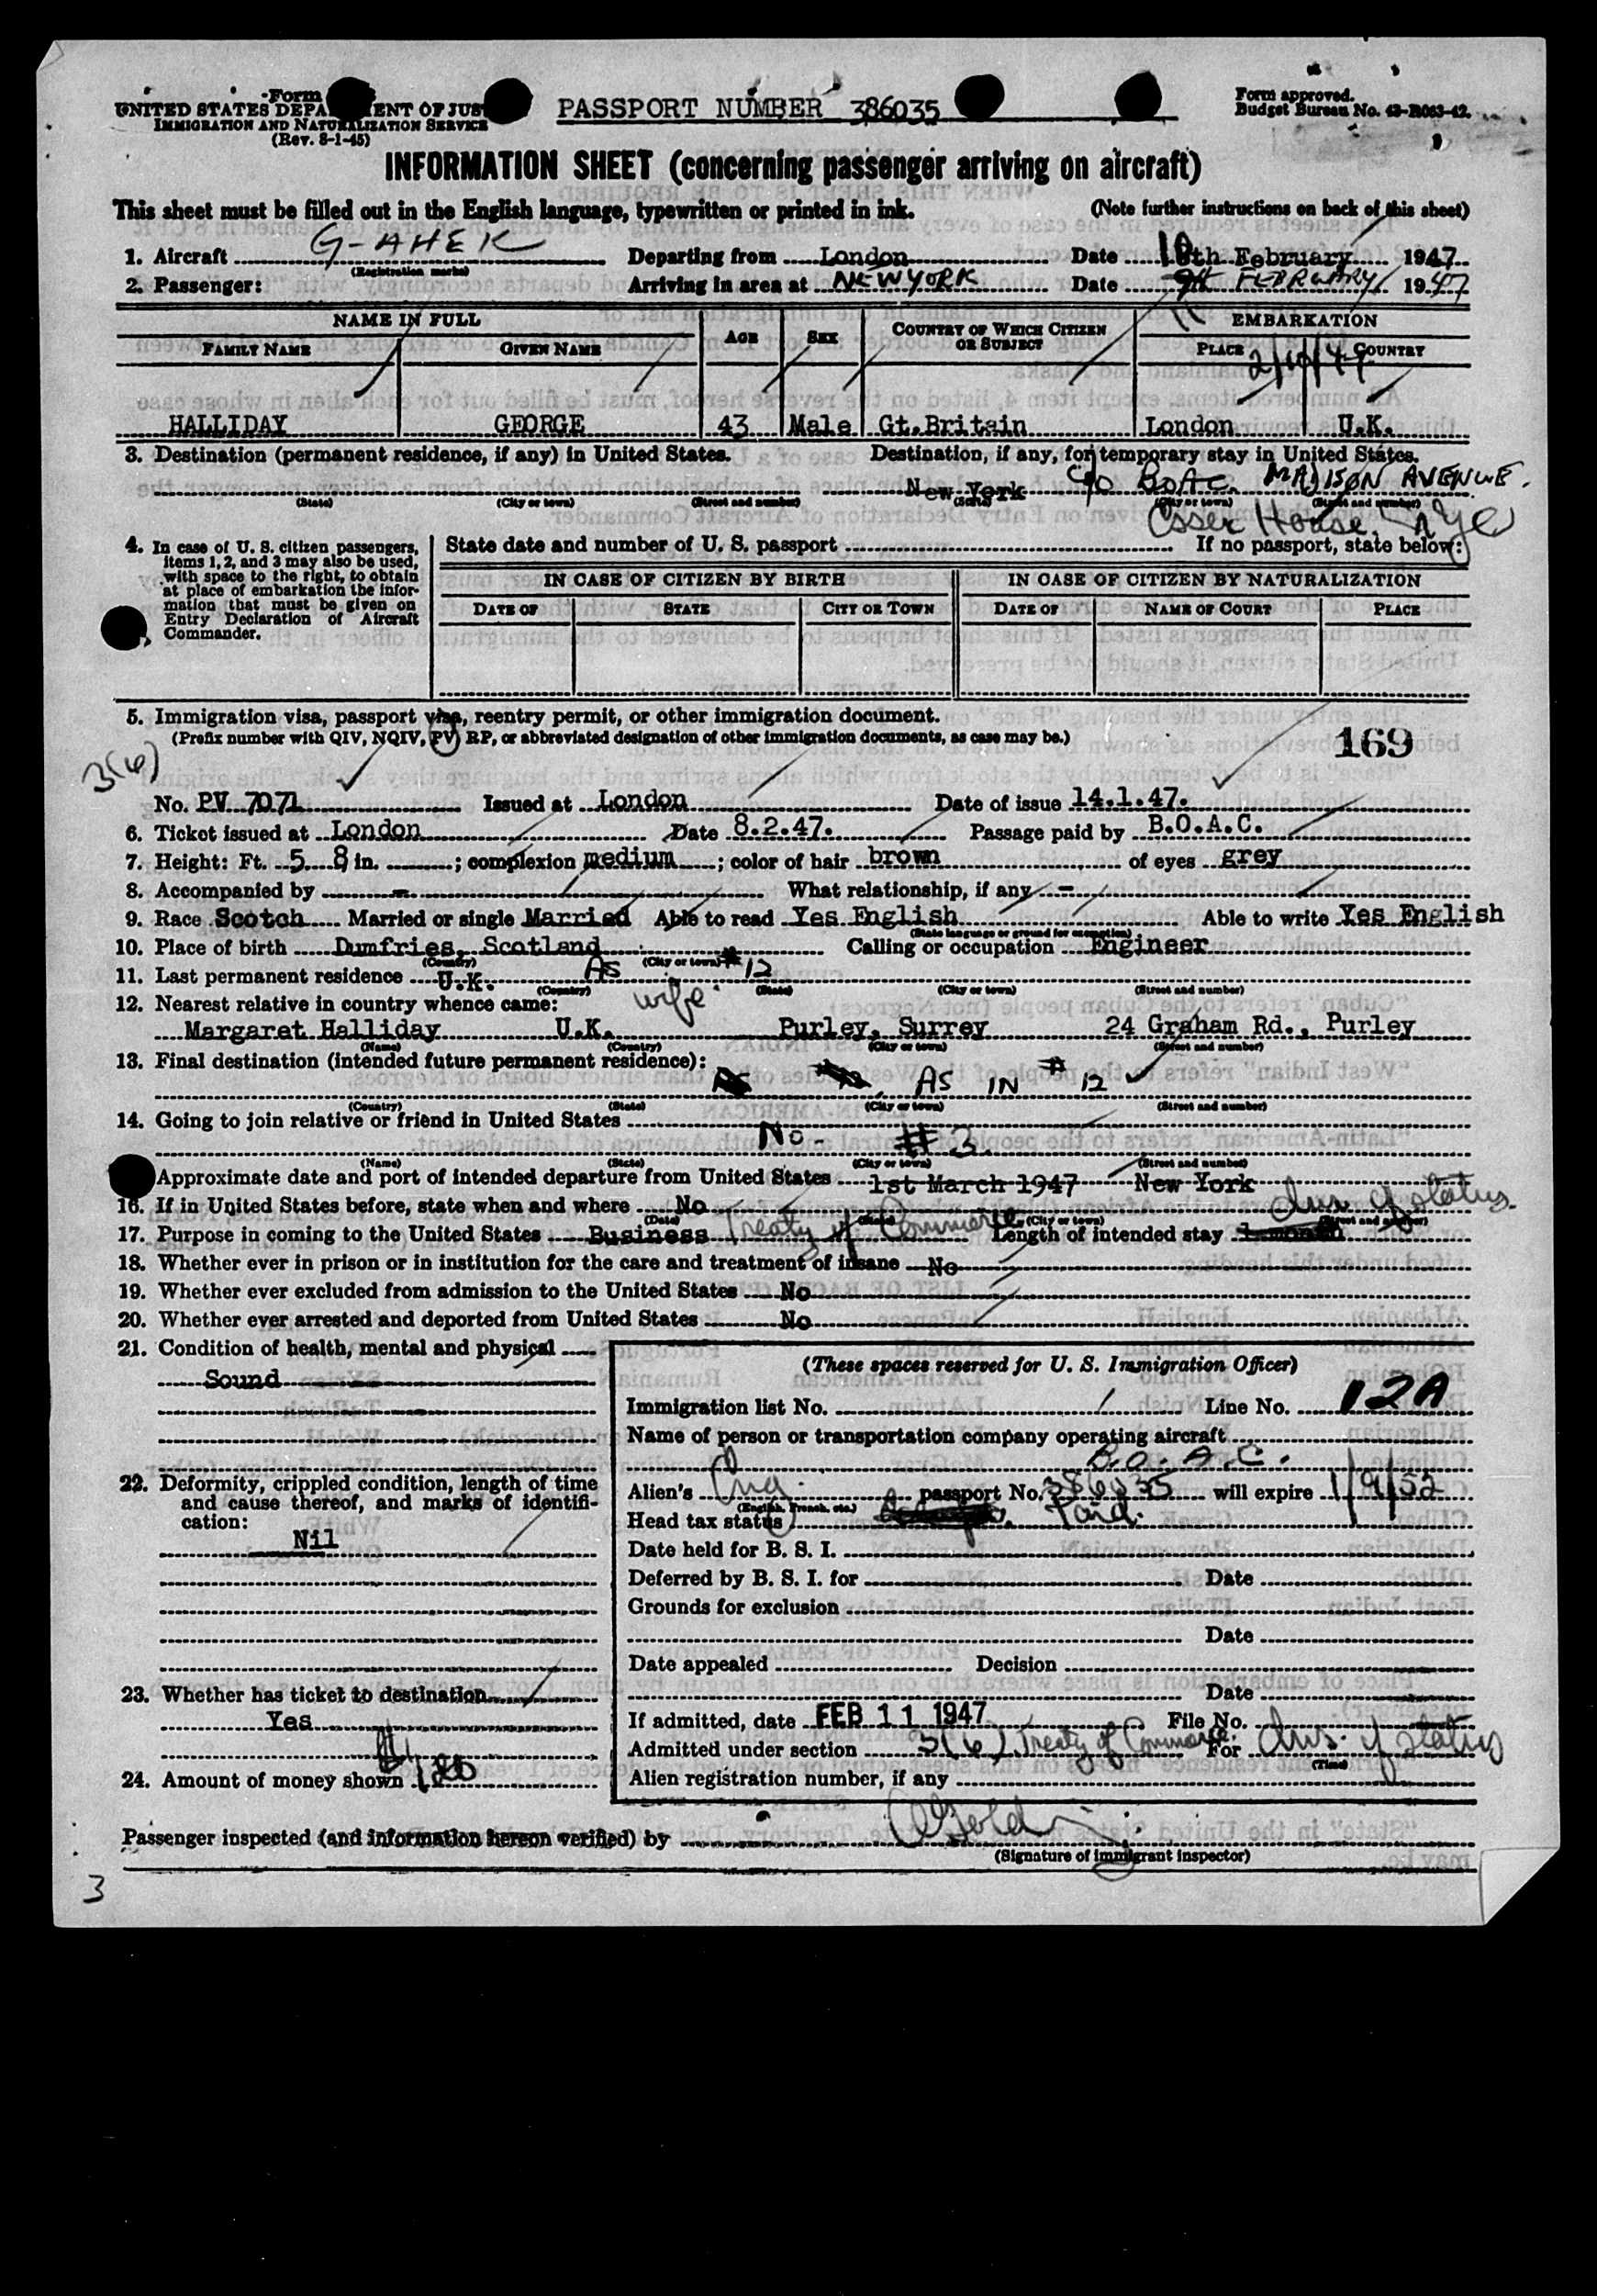 Form
UNITED STATES DEPA ENT OF JUS
IMMIGRATION AND NATURALIZATION SERVICE
(Rev. 8-1-45)
PASSPORT NUMBER 386035
Form approved.
Budget Bureau No. 43-R063-42.
INFORMATION SHEET (concerning passenger arriving on aircraft)
This sheet must be filled out in the English language, typewritten or printed in ink. (Note further instructions on back of this sheet)
1. Aircraft G-AHEK Departing from London Date 10th February 1947
(Registration marks)
2. Passenger: Arriving in area at NEW YORK Date 9th FEBRUARY 1947
11
NAME IN FULL AGE SEX COUNTRY OF WHICH CITIZEN OR SUBJECT EMBARKATION
FAMILY NAME GIVEN NAME PLACE COUNTRY
2/10/47
HALLIDAY GEORGE 43 Male Gt.Britain London U.K.
3. Destination (permanent residence, if any) in United States. Destination, if any, for temporary stay in United States.
New York c/o BOAC MADISON AVENUE.
(State) (City or town) (Street and number) (State) (City or town) (Street and number)
Essex House, NYC
4. In case of U. S. citizen passengers, items 1, 2, and 3 may also be used, with space to the right, to obtain at place of embarkation the information that must be given on Entry Declaration of Aircraft Commander.
State date and number of U. S. passport If no passport, state below:
IN CASE OF CITIZEN BY BIRTH IN CASE OF CITIZEN BY NATURALIZATION
DATE OF STATE CITY OR TOWN DATE OF NAME OF COURT PLACE
5. Immigration visa, passport visa, reentry permit, or other immigration document.
(Prefix number with QIV, NQIV, PV, RP, or abbreviated designation of other immigration documents, as case may be.)
169
3(6)
No. PV 7071 Issued at London Date of issue 14.1.47.
6. Ticket issued at London Date 8.2.47. Passage paid by B.O.A.C.
7. Height: Ft. 5 8 in. ; complexion medium ; color of hair brown of eyes grey
8. Accompanied by - What relationship, if any -
9. Race Scotch Married or single Married Able to read Yes English Able to write Yes English
(State language or ground for exemption)
10. Place of birth Dumfries, Scotland Calling or occupation Engineer
(Country) (City or town)
11. Last permanent residence U.K. As #12
(Country) (State) (City or town) (Street and number)
12. Nearest relative in country whence came: wife
Margaret Halliday U.K. Purley, Surrey 24 Graham Rd., Purley
(Name) (Country) (City or town) (Street and number)
13. Final destination (intended future permanent residence):
AS IN #12
(Country) (State) (City or town) (Street and number)
14. Going to join relative or friend in United States
No - # 3.
(Name) (State) (City or town) (Street and number)
Approximate date and port of intended departure from United States 1st March 1947 New York
16. If in United States before, state when and where No
(Date) (State) (City or town) (Street and number)
dur. of status.
17. Purpose in coming to the United States Business Treaty of Commerce Length of intended stay 1 month
18. Whether ever in prison or in institution for the care and treatment of insane No
19. Whether ever excluded from admission to the United States No
20. Whether ever arrested and deported from United States No
21. Condition of health, mental and physical
Sound
22. Deformity, crippled condition, length of time and cause thereof, and marks of identification:
Nil
23. Whether has ticket to destination
Yes
24. Amount of money shown
(These spaces reserved for U. S. Immigration Officer)
Immigration list No. Line No. 12A
Name of person or transportation company operating aircraft
B.O.A.C.
Alien's Eng. passport No. 386035 will expire 1/9/52
(English, French, etc.)
Head tax status Paid.
Date held for B. S. I.
Deferred by B. S. I. for Date
Grounds for exclusion
Date
Date appealed Decision
Date
If admitted, date FEB 11 1947 File No.
Admitted under section 3(6) Treaty of Commerce For dur. of status
(Time)
Alien registration number, if any
Passenger inspected (and information hereon verified) by
(Signature of immigrant inspector)
3